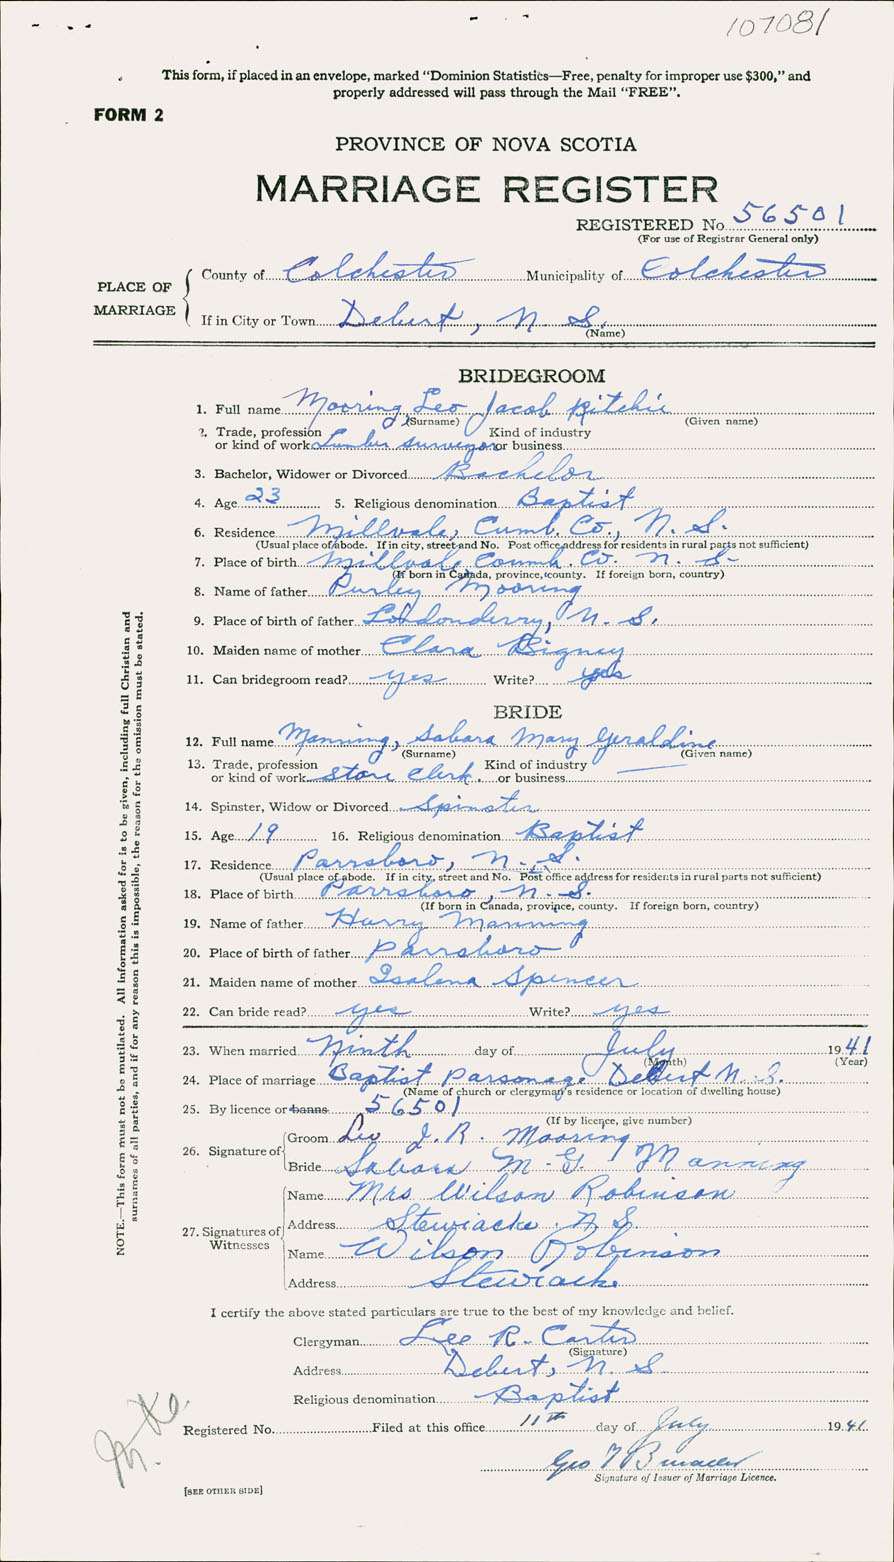 107081
This form, if placed in an envelope, marked "Dominion Statistics—Free, penalty for improper use $300," and
properly addressed will pass through the Mail "FREE".
FORM 2
PROVINCE OF NOVA SCOTIA
MARRIAGE REGISTER
REGISTERED No. 56501
(For use of Registrar General only)
PLACE OF MARRIAGE
County of Colchester Municipality of Colchester
If in City or Town Debert, N. S.
(Name)
BRIDEGROOM
1. Full name Mooring, Leo Jacob Ritchie
(Surname) (Given name)
2. Trade, profession Kind of industry
or kind of work Lumber surveyor or business
3. Bachelor, Widower or Divorced Bachelor
4. Age 23 5. Religious denomination Baptist
6. Residence Millvale, Cumb. Co., N. S.
(Usual place of abode. If in city, street and No. Post office address for residents in rural parts not sufficient)
7. Place of birth Millvale Cumb. Co. N. S.
(If born in Canada, province, county. If foreign born, country)
8. Name of father Purley Mooring
9. Place of birth of father Londonderry, N. S.
10. Maiden name of mother Clara Bigney
11. Can bridegroom read? yes Write? yes
BRIDE
12. Full name Manning, Sabara Mary Geraldine
(Surname) (Given name)
13. Trade, profession Kind of industry
or kind of work Store Clerk. or business
14. Spinster, Widow or Divorced Spinster
15. Age 19 16. Religious denomination Baptist
17. Residence Parrsboro, N. S.
(Usual place of abode. If in city, street and No. Post office address for residents in rural parts not sufficient)
18. Place of birth Parrsboro, N. S.
(If born in Canada, province, county. If foreign born, country)
19. Name of father Harry Manning
20. Place of birth of father Parrsboro
21. Maiden name of mother Isalena Spencer
22. Can bride read? yes Write? yes
23. When married Ninth day of July 1941
(Month) (Year)
24. Place of marriage Baptist Parsonage Debert N. S.
(Name of church or clergyman's residence or location of dwelling house)
25. By licence or banns 56501
(If by licence, give number)
26. Signature of
Groom Leo J. R. Mooring
Bride Sabara M. G. Manning
27. Signatures of Witnesses
Name Mrs Wilson Robinson
Address Stewiacke. N. S.
Name Wilson Robinson
Address Stewiacke
I certify the above stated particulars are true to the best of my knowledge and belief.
Clergyman Lee R. Carter
(Signature)
Address Debert, N. S.
Religious denomination Baptist
Registered No. Filed at this office 11th day of July 1941.
Geo
Signature of Issuer of Marriage Licence.
[SEE OTHER SIDE]
NOTE.—This form must not be mutilated. All information asked for is to be given, including full Christian and
surnames of all parties, and if for any reason this is impossible, the reason for the omission must be stated.